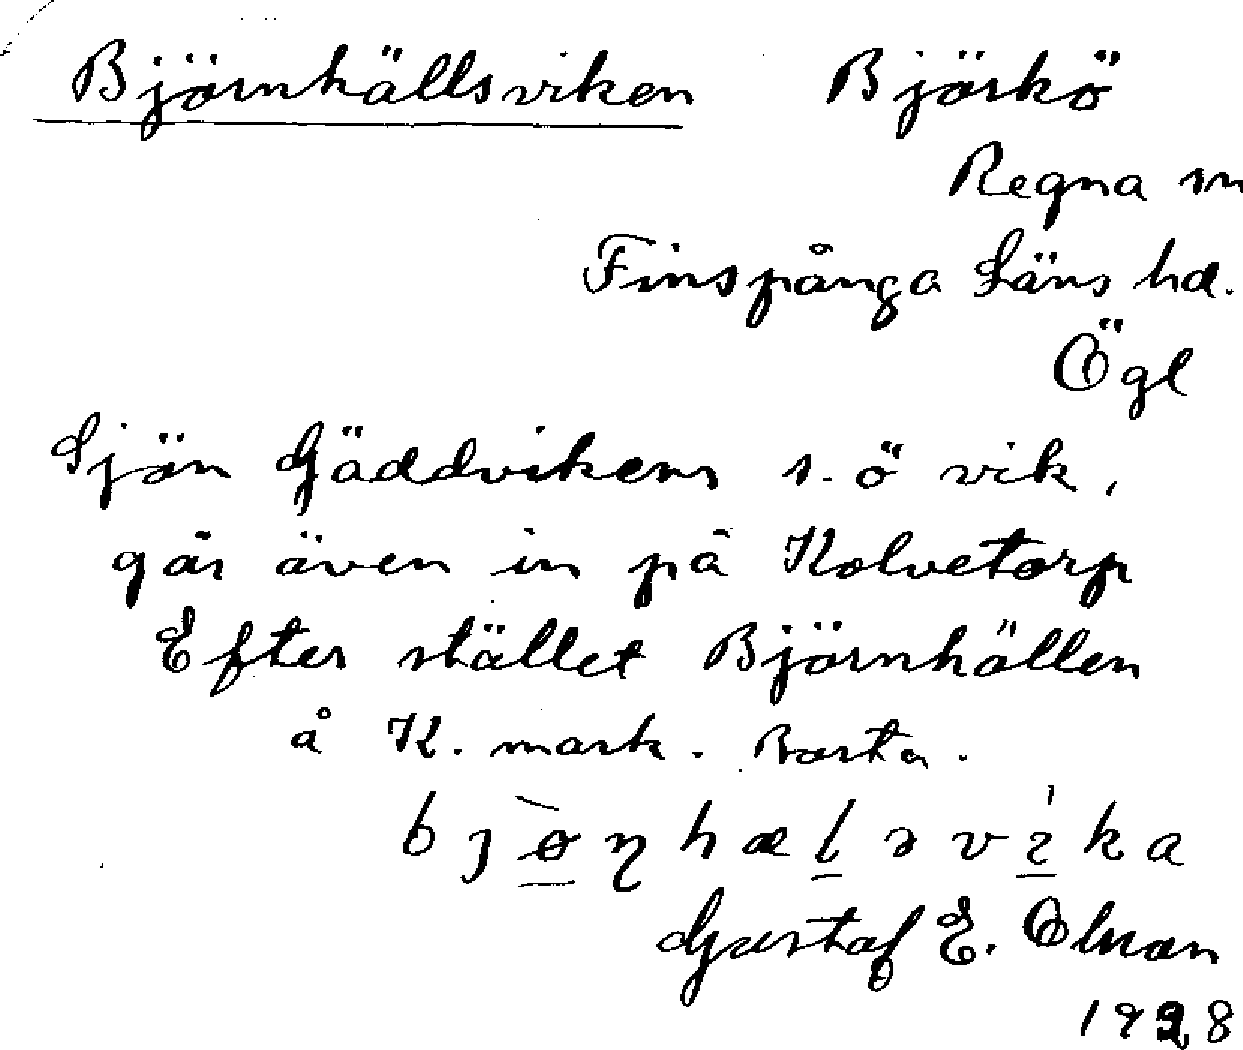 Björnhällsviken Björkö
Regna sn
Finspånga Läns hd.
Ögl
Sjön Gäddvikens s.ö vik,
går även in på Kolvetorp
Efter stället Björnhällen
å K. mark. Borta.
bjøn̥hælsvika
Gustaf E. Olman
1928